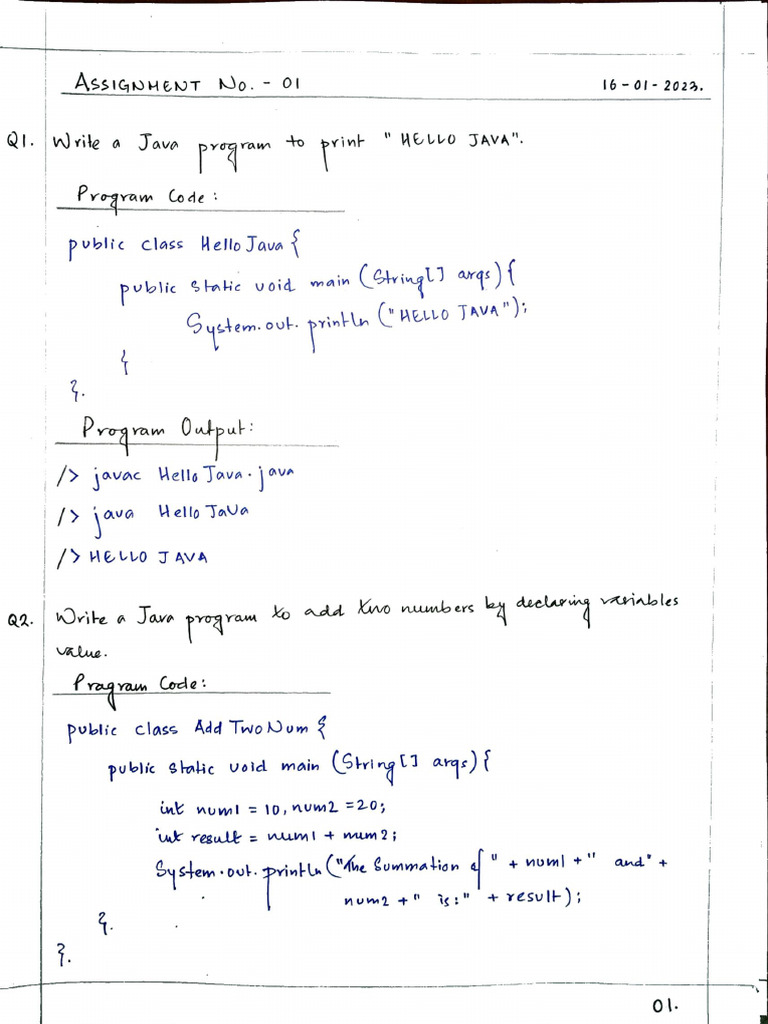 ASSIGNMENT NO. - 01 16-01-2023.
Q1. Write a Java program to print "HELLO JAVA".
Program Code:
public class HelloJava {
public static void main (String[] args) {
System.out.println ("HELLO JAVA");
{
}.
Program Output:
/> javac HelloJava.java
/> java HelloJaVa
/> HELLO JAVA
Q2. Write a Java program to add two numbers by declaring variables
value.
Pragram Code:
public class AddTwoNum {
public static void main (String[] args) {
int num1 = 10, num2 = 20;
int result = num1 + num2;
System.out.println ("The Summation of " + num1 + " and" +
num2 + " is:" + result);
}.
}.
01.